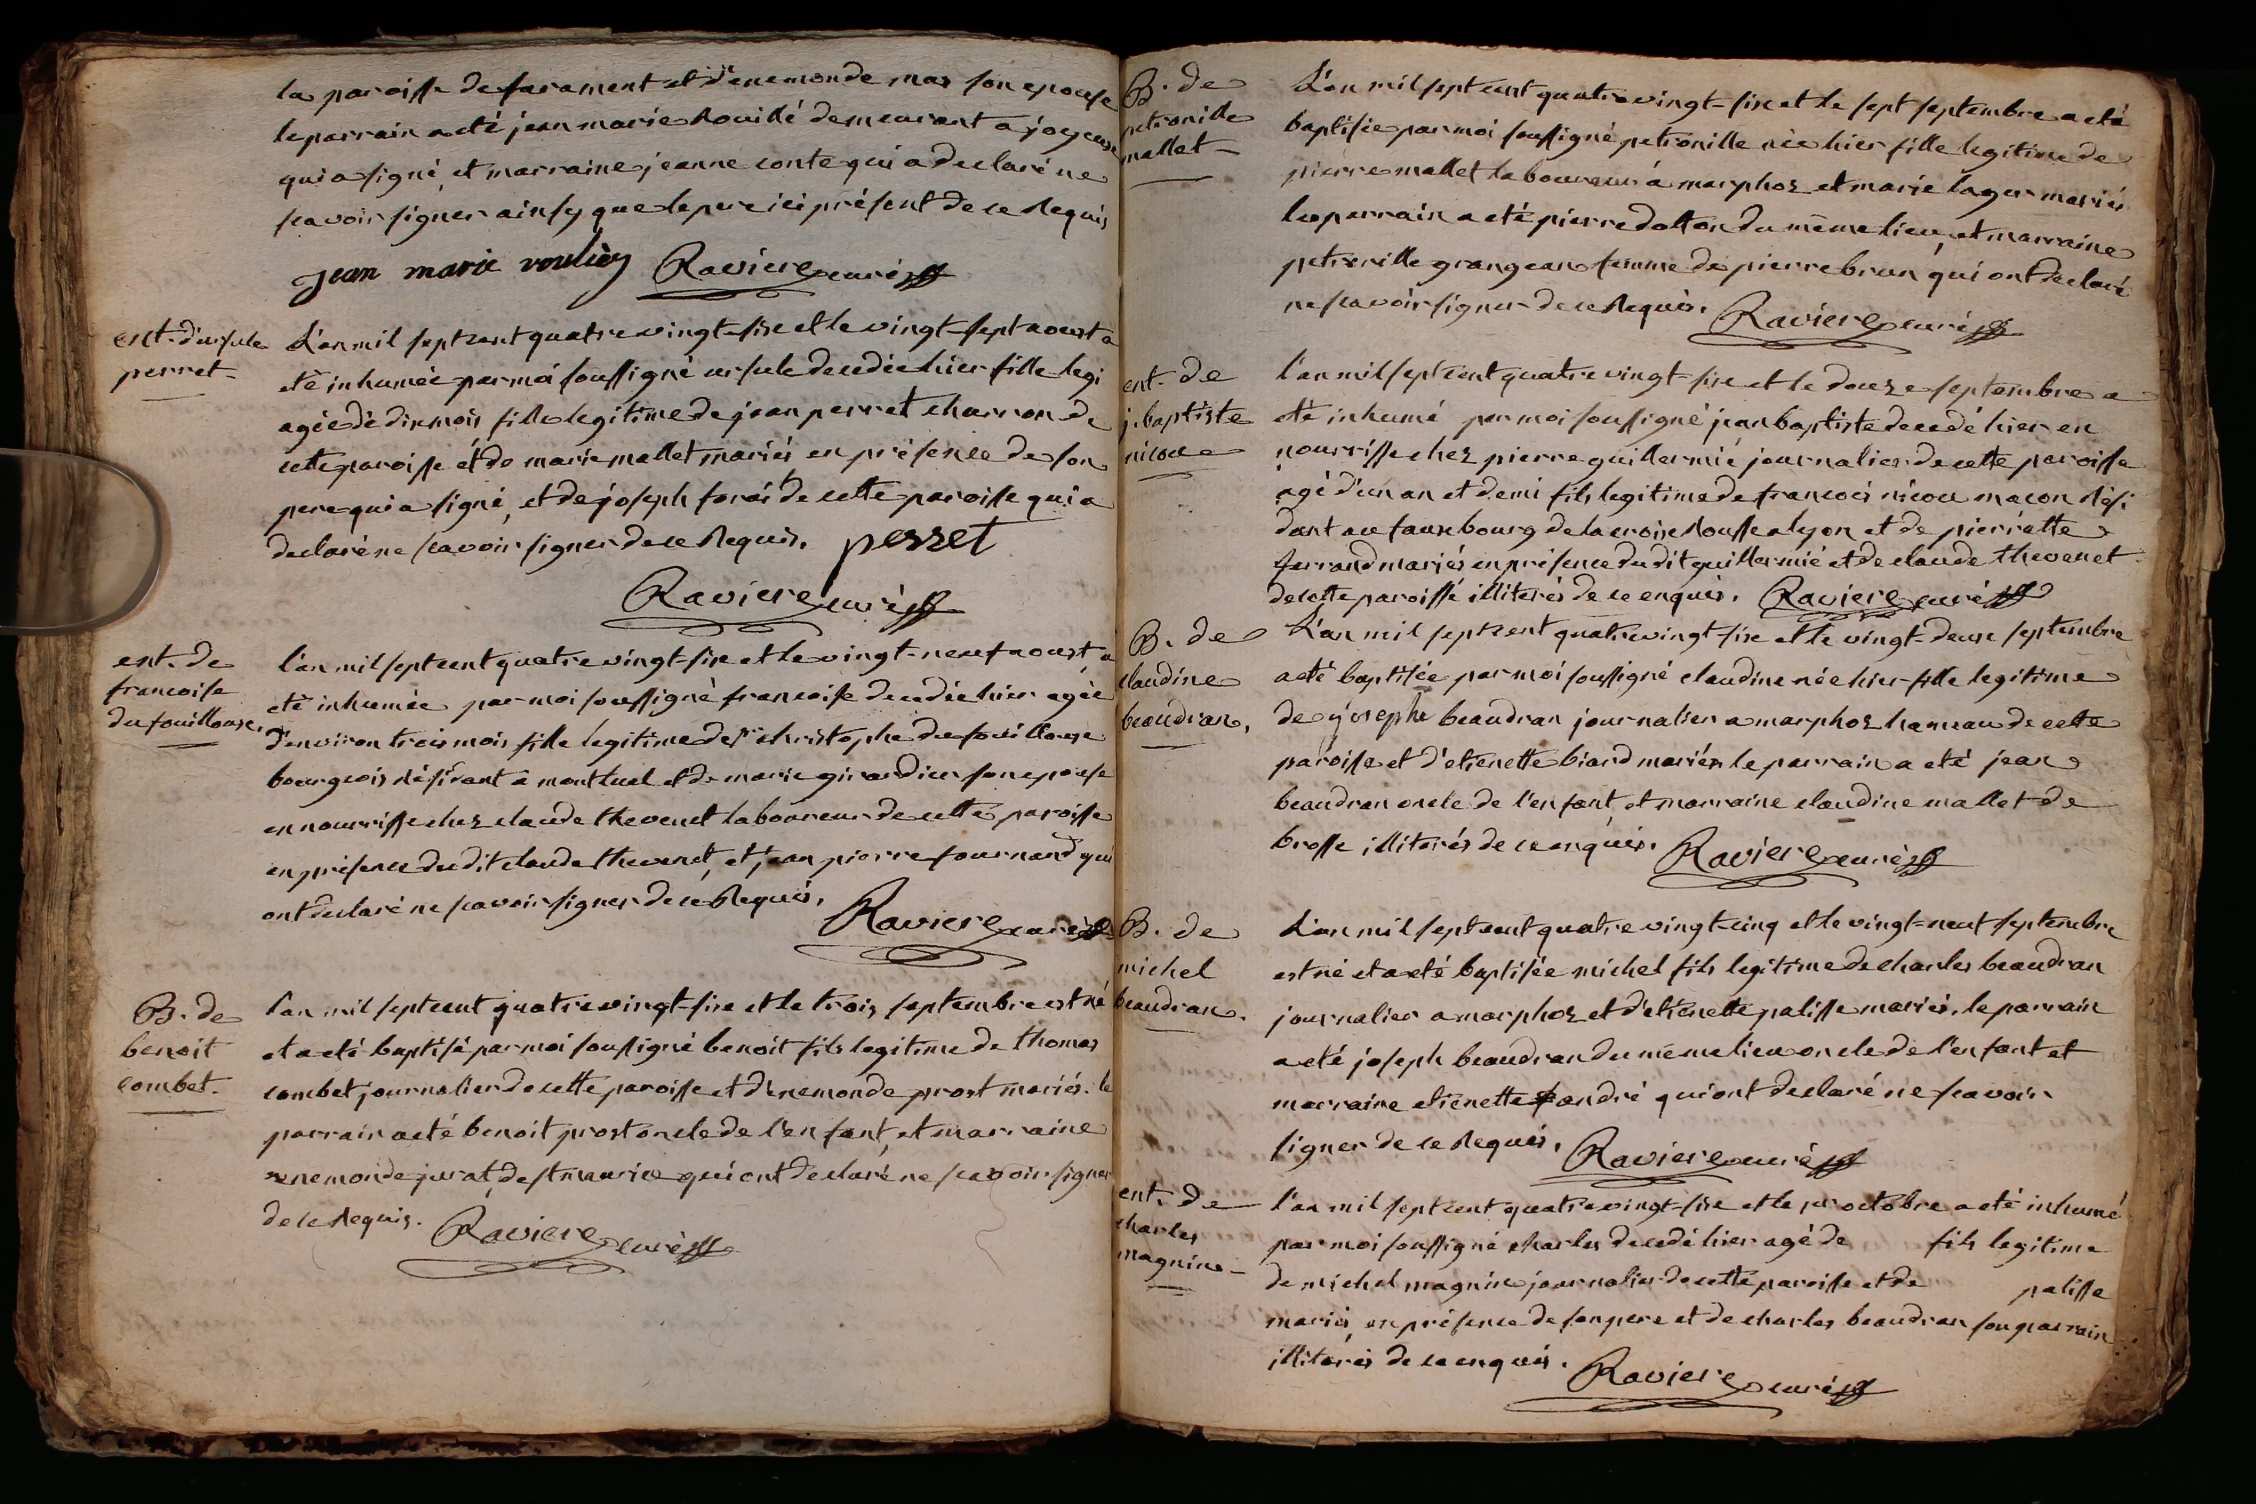 la paroisse de faramant et d'enemonde mas son epouse
le parrain a eté jean marie Rouillé demeurant a joyeux
qui a signé, et marraine jeanne conte qui a declaré ne
scavoir signer ainsy que le pere ici présent de ce Requis
jean marie
Raviere curé
ent. d'ursule
perret
L'an mil sept cent quatre vingt-six et le vingt-sept aoust a
eté inhumée par moi soussigné ursule decedée hier fille legi
agée de dix mois fille legitime de jean perret charron de
cette paroisse et de marie mallet mariés en présence de son
pere qui a signé, et de joseph de cette paroisse qui a
declaré ne scavoir signer de ce Requis. perret
Raviere curé
ent. de
francoise
du fouillouse.
l'an mil sept cent quatre vingt-six et le vingt-neuf aoust a
eté inhumée par moi soussigné francoise decedée hier agée
d'environ trois mois fille legitime de sr christophe du fouillouse
bourgeois résidant a montluel et de marie girardier son epouse
en nourrisse chez claude thevenet laboureur de cette paroisse
en présence du dit claude thevenet, et jean pierre fournand qui
ont declaré ne scavoir signer de ce Requis.
Raviere curé
B. de
benoit
combet.
l'an mil sept cent quatre vingt-six et le trois septembre est né
et a eté baptisé par moi soussigné benoit fils legitime de thomas
combet journalier de cette paroisse et d'enemonde prost mariés. le
parrain a eté benoit prost oncle de l'enfant, et marraine
enemonde jurat, de st maurice qui ont declaré ne scavoir signer
de ce Requis. Raviere curé
B. de
petronille
mallet
L'an mil sept cent quatre vingt-six et le sept septembre a eté
baptisée par moi soussigné petronille née hier fille legitime de
pierre mallet laboureur á marphoz et marie lager mariés
le parrain a eté pierre dalton du même lieu, et marraine
petronille grangean femme de pierre brun qui ont declaré
ne scavoir signer de ce Requis. Raviere curé
ent. de
j. baptiste
nicou
l'an mil sept cent quatre vingt-six et le douze septembre a
eté inhumé par moi soussigné jean baptiste decedé hier en
nourrisse chez pierre guillermié journalier de cette paroisse
agé d'un an et demi fils legitime de francois nicou macon rési
dant au fauxbourg de la croix Rousse a lyon et de pierrette
ferrand mariés en présence du dit guillermié et de claude thevenet
de cette paroisse illiterés de ce enquis. Raviere curé
B. de
claudine
beaudran.
L'an mil sept cent quatre vingt-six et le vingt-deux septembre
a eté baptisée par moi soussigné claudine née hier fille legitime
de joseph beaudran journalier a marphoz hameau de cette
paroisse et d'etienette biard mariés le parrain a eté jean
beaudran oncle de l'enfant, et marraine claudine mallet de
brosse illiterés de ce enquis. Raviere curé
B. de
michel
beaudran.
L'an mil sept cent quatre vingt-cinq et le vingt-neuf septembre
est né et a eté baptisée michel fils legitime de charles beaudran
journalier a marphoz et d'etienette palisse mariés. le parrain
a eté joseph beaudran du même lieu oncle de l'enfant et
marraine etienette andré qui ont declaré ne scavoir
signer de ce Requis. Raviere curé
ent. de
charles
magnin
l'an mil sept cent quatre vingt-six et le 1er octobre a eté inhumé
par moi soussigné charles decedé hier agé de fils legitime
de michel magnin journalier de cette paroisse et de palisse
mariés, en présence de son pere et de charles beaudran son parrain
illiterés de ce enquis. Raviere curé